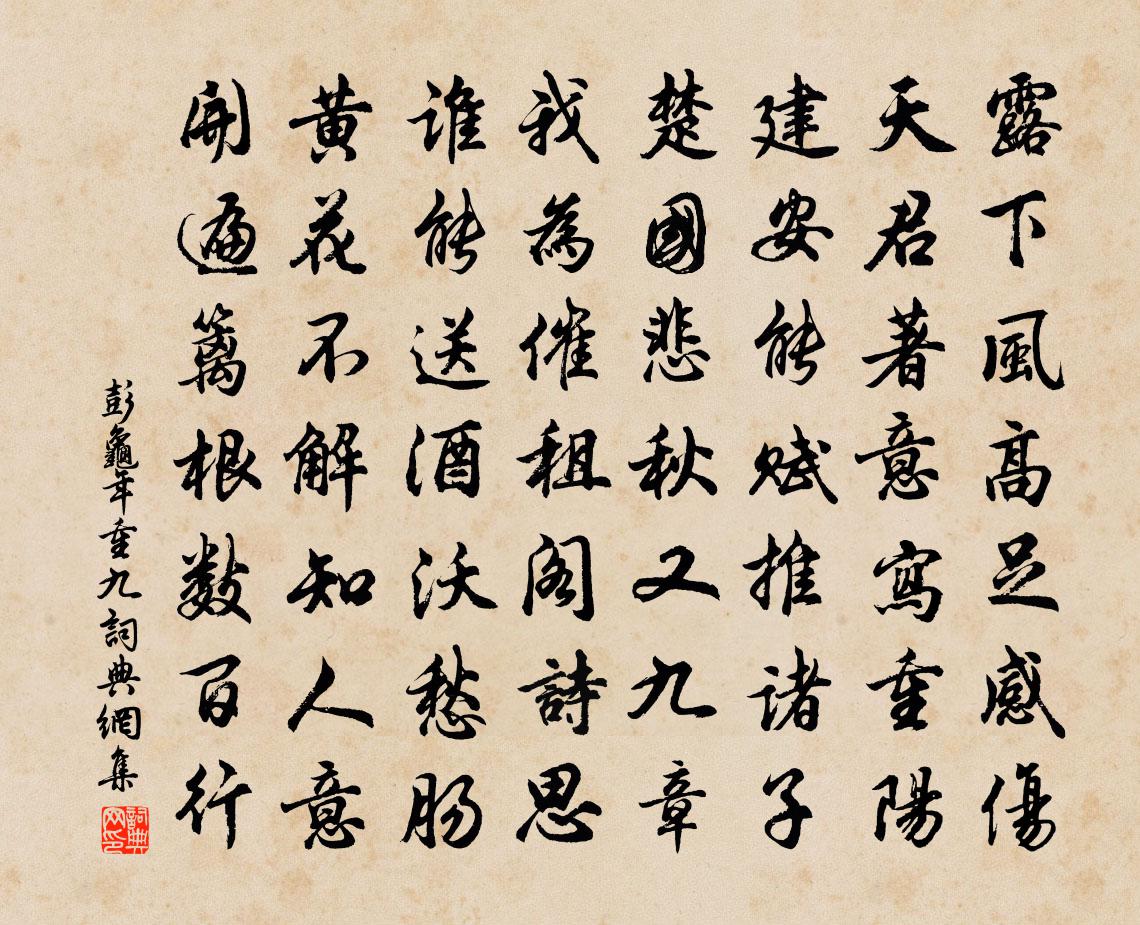 露下風高足感傷
天君著意寫重陽
建安能賦推諸子
楚國悲秋又九章
我為催租閣詩思
誰能送酒沃愁腸
黃花不解知人意
開遍籬根數百行
彭龜年重九詞典網集
詞典網印